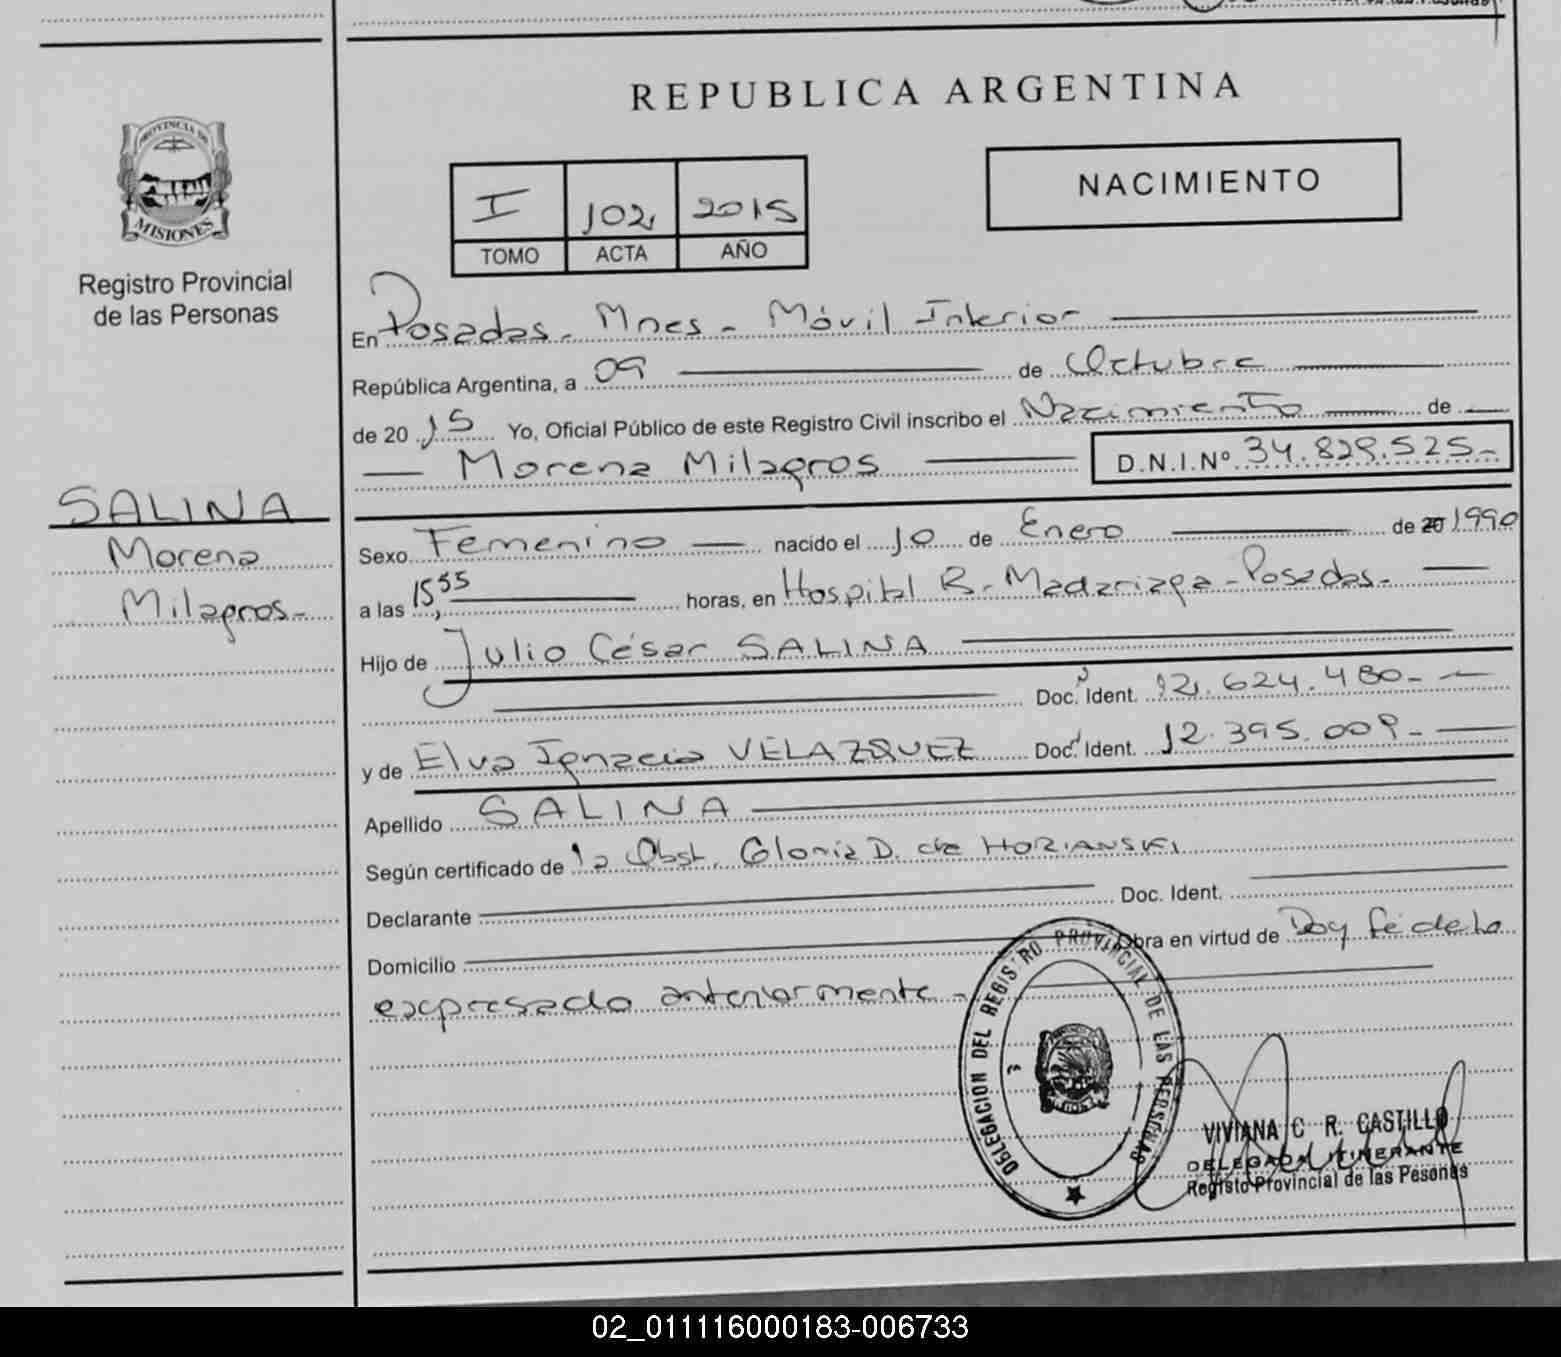 REPUBLICA ARGENTINA
PROVINCIA DE
MISIONES
Registro Provincial
de las Personas
NACIMIENTO
I 102 2015
TOMO ACTA AÑO
En Posadas - Mnes - Móvil Interior
República Argentina, a 09 de Octubre
de 2015 Yo, Oficial Público de este Registro Civil inscribo el Nacimiento de
Morena Milagros D.N.I.Nº 34.829.525-
SALINA
Morena
Milagros-
Sexo Femenino nacido el 10 de Enero de 20 1990
a las 15,55 horas, en Hospital R. Madariaga - Posadas-
Hijo de Julio César SALINA
Doc. Ident. 12.624.480-
y de Elva Ignacia VELAZQUEZ Doc. Ident. 12.395.009-
Apellido SALINA
Según certificado de la Obst. Gloria D. de HORIANSKI
Declarante Doc. Ident.
Domicilio Obra en virtud de Doy fé de lo
expresado anteriormente-
DELEGACION DEL REGISTRO PROVINCIAL DE LAS PERSONAS
3
VIVIANA C R. CASTILLO
DELEGADA ITINERANTE
Registo Provincial de las Pesonas
02_011116000183-006733